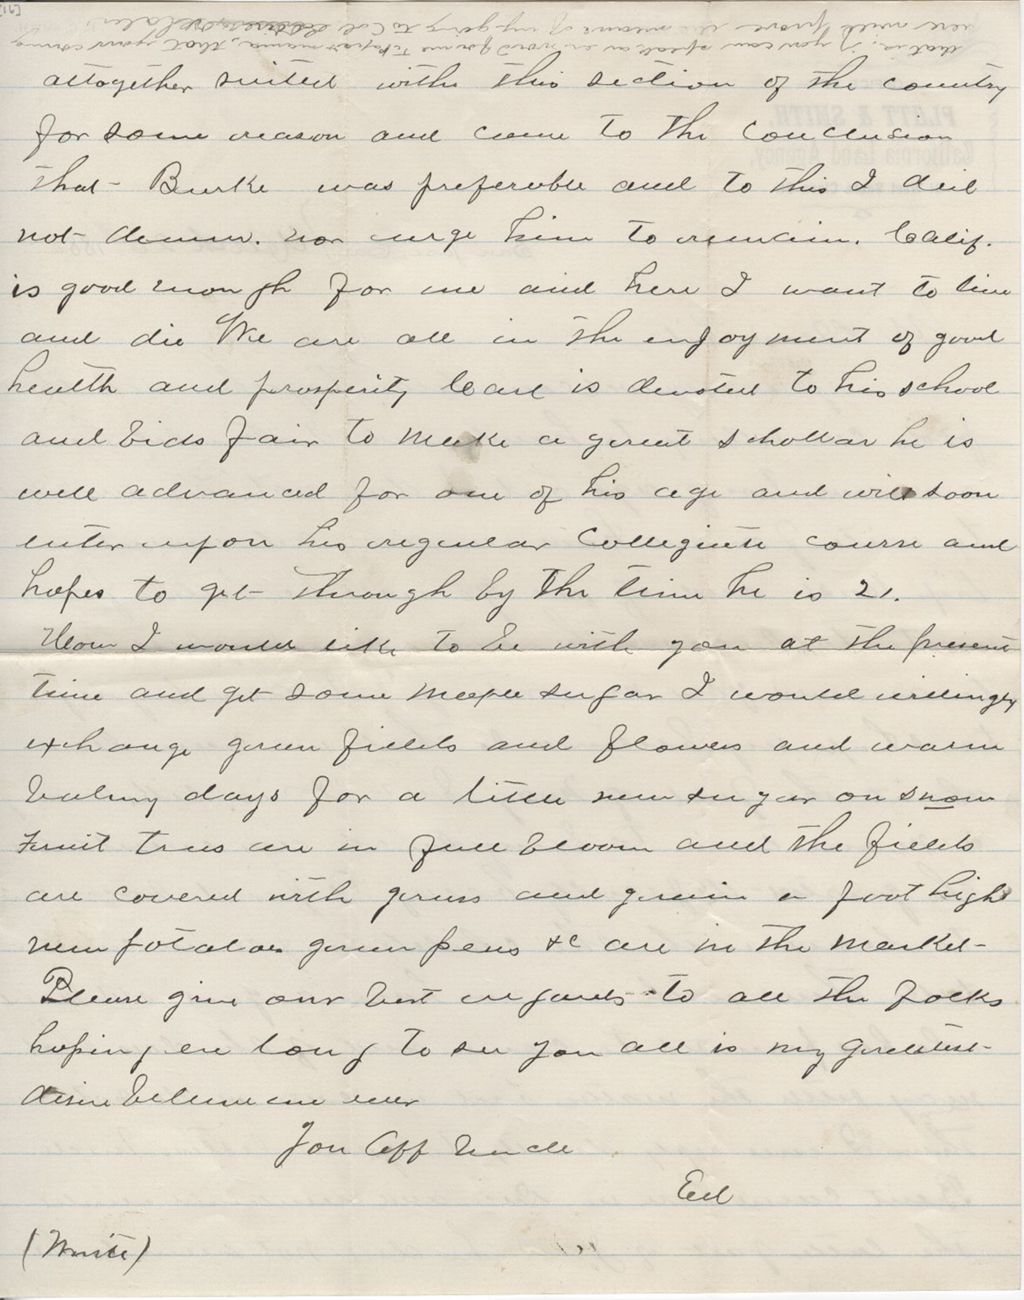 altogether suited with this section of the country
for some reason and came to the conclusion
that Burke was preferable and to this I did
not demur. nor urge him to remain. Calif.
is good enough for me and here I want to live
and die We are all in the enjoyment of good
health and prosperity Carl is devoted to his school
and bids fair to make a great schollar he is
well advanced for one of his age and will soon
enter upon his regular Collegiate course and
hopes to get through by the time he is 21.
How I would like to be with you at the present
time and get some maple sugar I would willingly
exchange green fields and flowers and warm
balmy days for a little new sugar on snow
Fruit trees are in full bloom and the fields
are covered with grass and grain a foot high
new potatoes green peas &c are in the market
Please give our best regards to all the folks
hoping ere long to see you all is my greatest
desire believe me ever
You Aff Uncle
Ed
(Write)
that is, if you can speak a word for me to papa & mama, that your coming
here will prove the means of my going to Col
PLATT & SMITH,
California Land Agency,